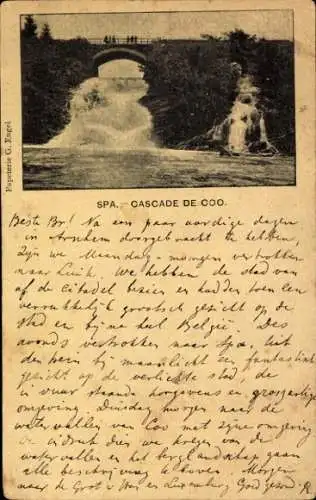 Papeterie G. Engel
SPA. - CASCADE DE COO.
Beste Br! Na een paar aardige dagen
in Arnhem doorgebracht te hebben,
zijn we Maandag-morgen vertrokken
naar Luik. We hebben de stad van
af de Citadel bezien en hadden toen een
verrukkelijk grootsch gezicht op de
stad en bijna het België. Des
avonds vertrokken naar Spa, uit
den trein bij maanlicht een fantastisch
gezicht op de verlichte stad, de
in vuur staande hoogovens en grootsche
omgeving. Dinsdag morgen naar de
watervallen van Coo met zijne omgeving
indruk dien we kregen van de
watervallen en het berglandschap gaan
alle beschrijving te boven. Morgen
naar de Grot v Han en Luxemburg